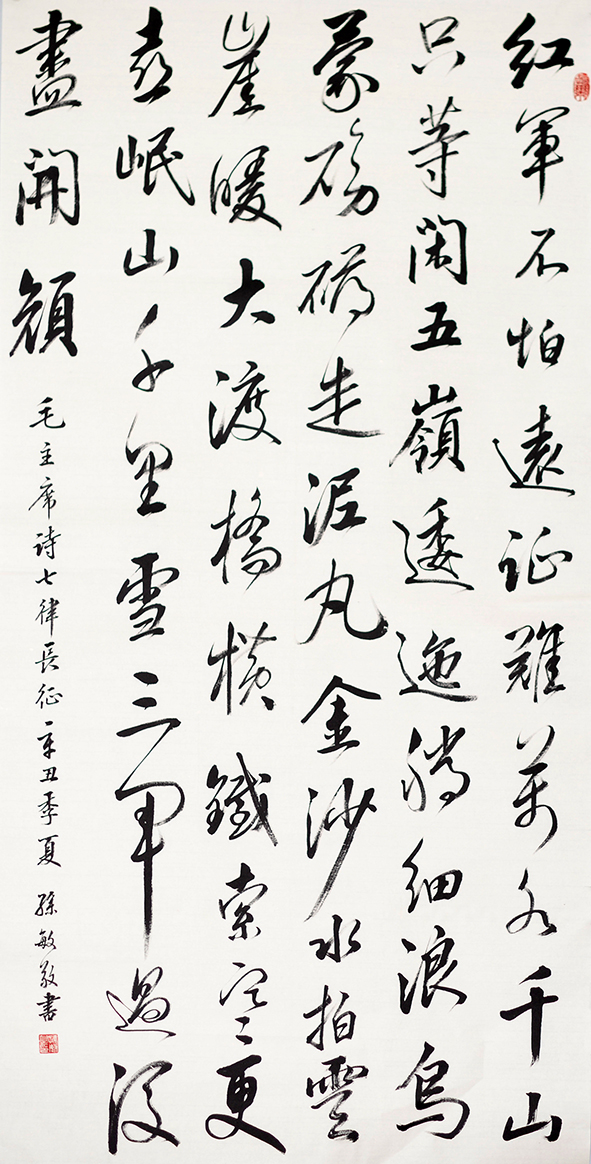 紅軍不怕遠征難萬水千山
只等閑五嶺逶迤騰細浪烏
蒙磅礴走泥丸金沙水拍雲
崖暖大渡橋橫鐵索寒更
喜岷山千里雪三軍過後
盡開顏
毛主席诗七律長征辛丑季夏 孫敏敬書